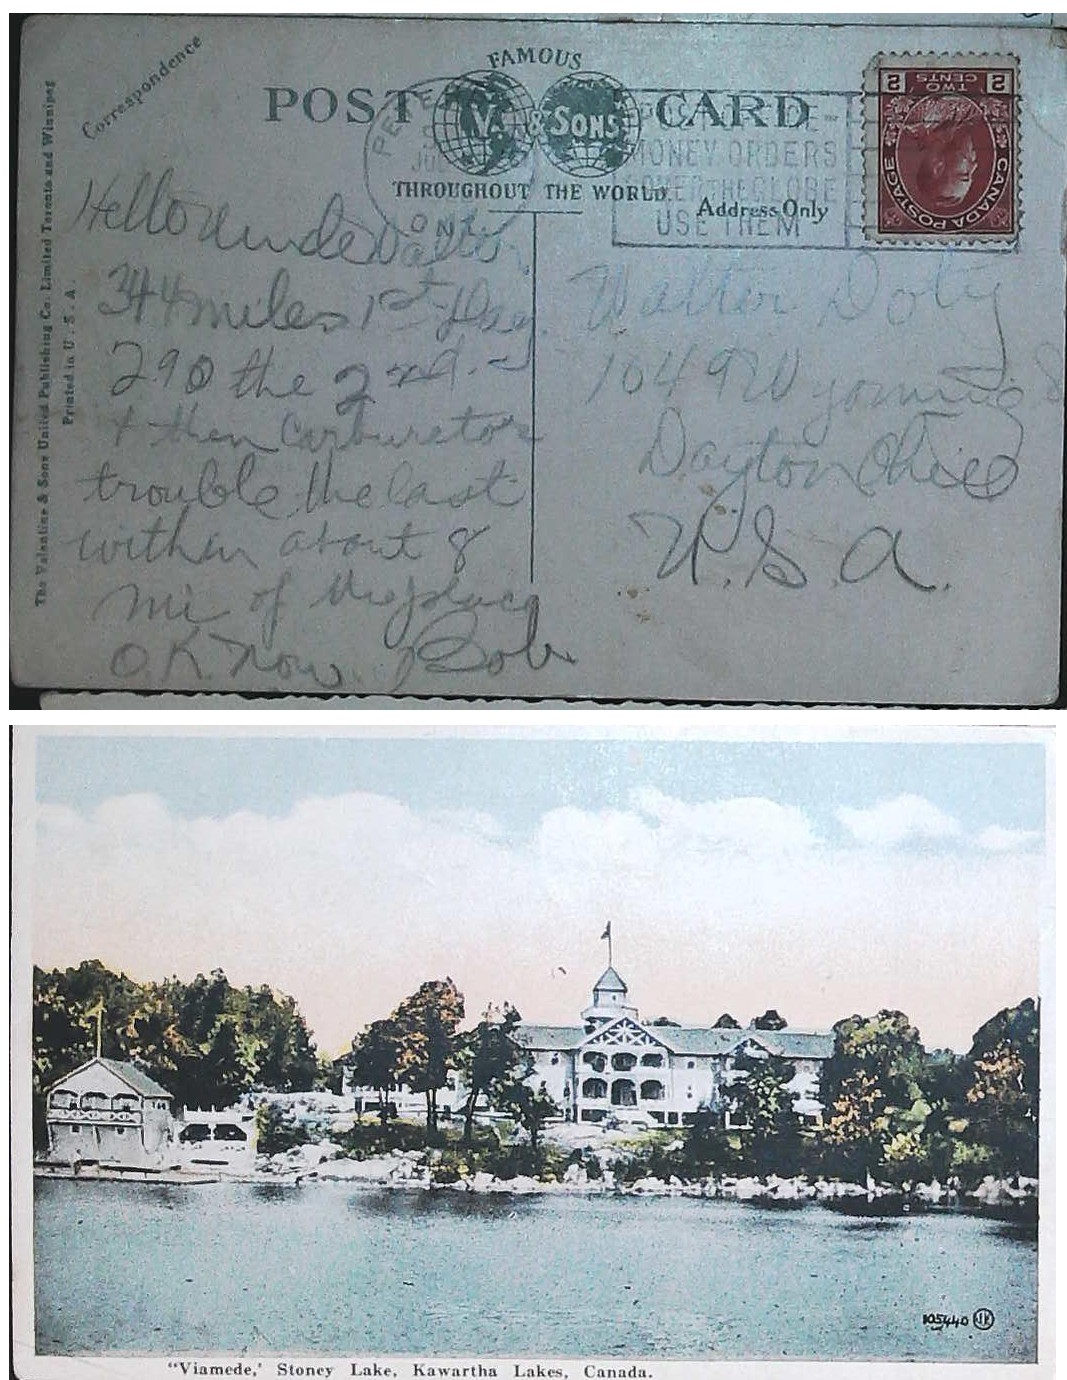 Correspondence
FAMOUS
POST CARD
V. & SONS
THROUGHOUT THE WORLD.
MONEY ORDERS
THE GLOBE
USE THEM
ONT.
Address Only
TWO CENTS
2 2
CANADA POSTAGE
The Valentine & Sons United Publishing Co. Limited Toronto and Winnipeg
Printed in U.S.A.
Hello Walter
344 miles 1st Day.
290 the 2nd.
+ then carburetor
trouble the last
within about 8
mi of the place
O.K. now. Bob
Walter Doty
1049 Wyoming S
Dayton Ohio
U.S.A.
105440 JV
"Viamede,' Stoney Lake, Kawartha Lakes, Canada.